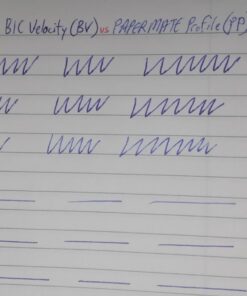 BIC Velocity (BV) vs PAPERMATE Profile (PP)